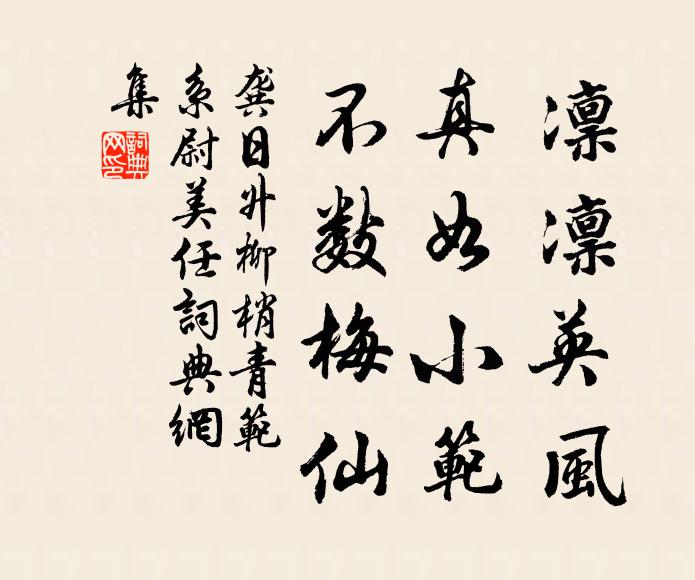 凜凜英風
真如小範
不數梅仙
龔日升柳梢青範
系尉美任詞典網
集
詞典
网印